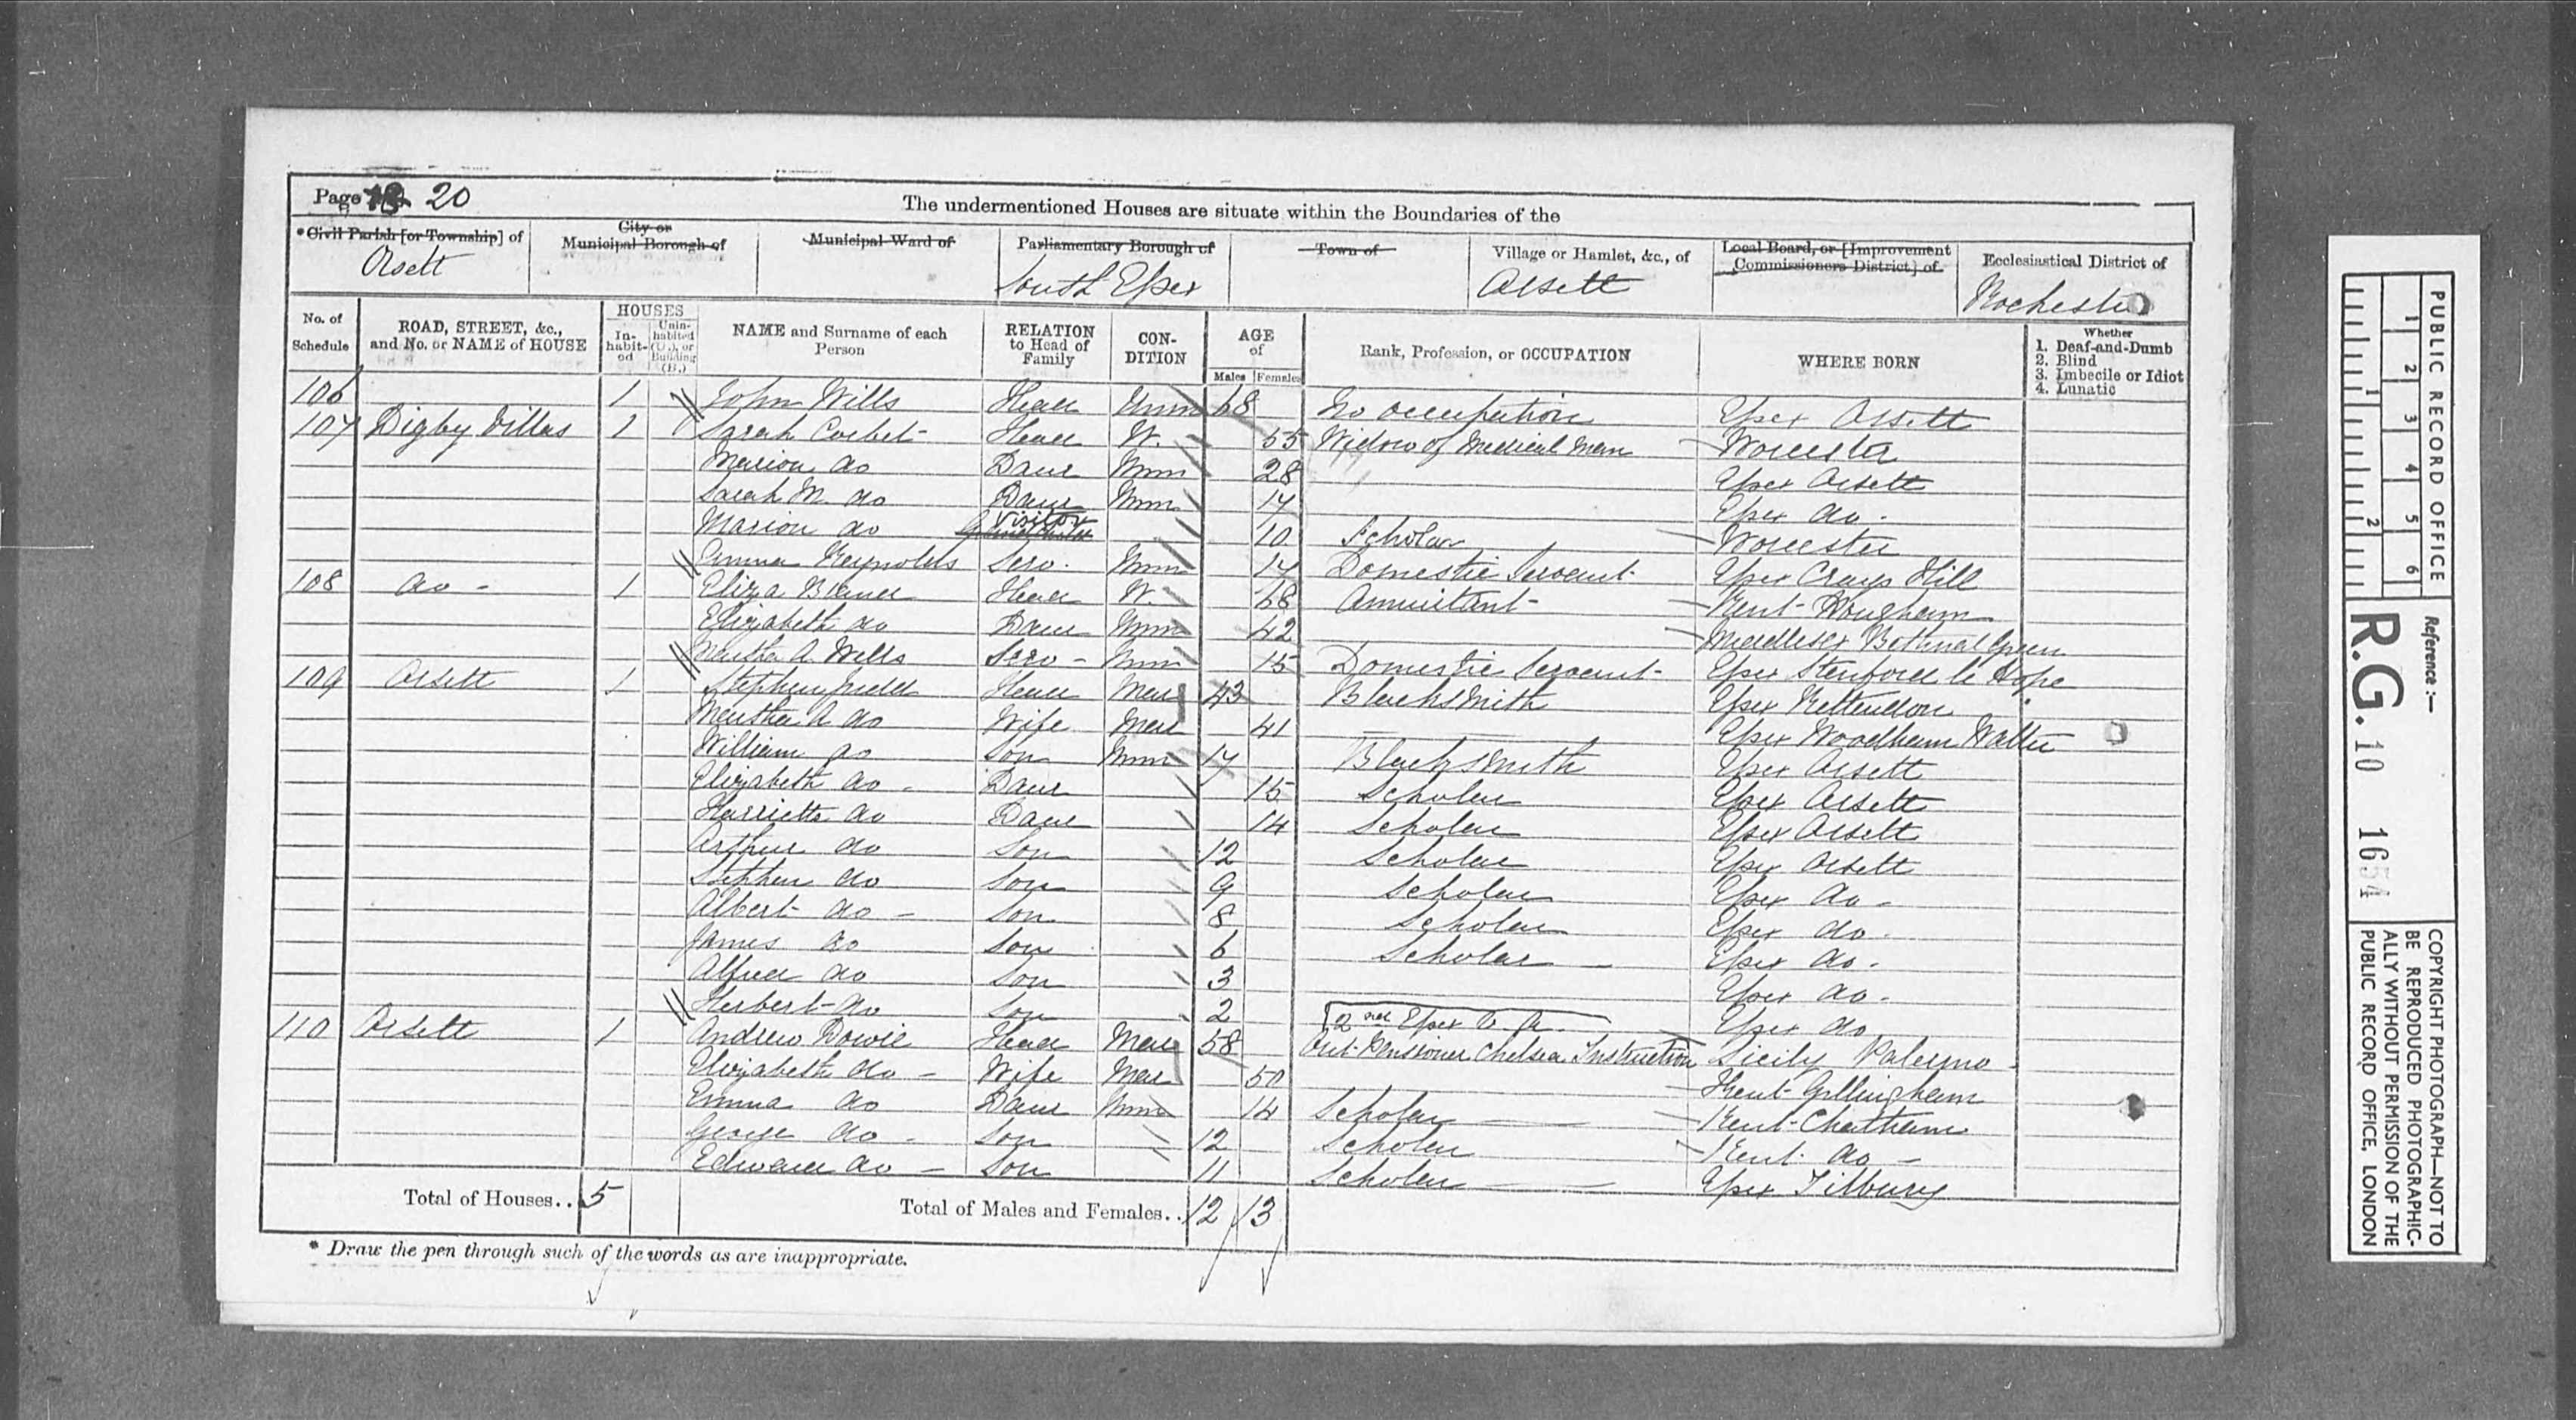 Page 20
The undermentioned Houses are situate within the Boundaries of the
*Civil Parish [or Township] of
City or
Municipal Borough of
Municipal Ward of
Parliamentary Borough of
Town of
Village or Hamlet, &c., of
Local Board, or [Improvement
Commissioners District] of
Ecclesiastical District of
Orsett
South Essex
Orsett
Rochester
No. of
Schedule
ROAD, STREET, &c.,
and No. or NAME of HOUSE
HOUSES
In-
habit-
ed
Unin-
habited
(U.), or
Building
(B.)
NAME and Surname of each
Person
RELATION
to Head of
Family
CON-
DITION
AGE
of
Males Females
Rank, Profession, or OCCUPATION
WHERE BORN
Whether
1. Deaf-and-Dumb
2. Blind
3. Imbecile or Idiot
4. Lunatic
106 1 John Wills Head Unm 68 No occupation Essex Orsett
107 Digby Villas 1 Sarah Corbet Head W. 55 Widow of Medical Man Worcester
Marion do Daur Unm 28 Essex Orsett
Sarah M. do Daur Unm 17 Essex do
Marion do Visitor 10 Scholar Worcester
Emma Reynolds Serv. Unm 17 Domestic Servant Essex Crays Hill
108 do 1 Eliza Head W. 68 Annuitant Kent Hougham
Elizabeth do Daur Unm 42 Middlesex Bethnal Green
Martha A. Wells Serv Unm 15 Domestic Servant Essex Stanford le Hope
109 Orsett 1 Stephen Head Mar 43 Blacksmith Essex Rettendon
Martha A do Wife Mar 41 Essex Woodham Walter
William do Son Unm 17 Blacksmith Essex Orsett
Elizabeth do Daur 15 Scholar Essex Orsett
Harriett do Daur 14 Scholar Essex Orsett
Arthur do Son 12 Scholar Essex Orsett
Stephen do Son 9 Scholar Essex do
Albert do Son 8 Scholar Essex do
James do Son 6 Scholar Essex do
Alfred do Son 3 Essex do
Herbert do Son 2 Essex do
2nd Essex
110 Orsett 1 Andrew Dowie Head Mar 58 Out-Pensioner Chelsea Instruction Sicily Palermo
Elizabeth do Wife Mar 50 Kent Gillingham
Emma do Daur Unm 14 Scholar Kent Chatham
George do Son 12 Scholar Kent do
Edward do Son 11 Scholar Essex Tilbury
Total of Houses.. 5
Total of Males and Females.. 12 13
* Draw the pen through such of the words as are inappropriate.
PUBLIC RECORD OFFICE
1 2 3 4 5 6
1 2
Reference :-
R.G. 10 1654
COPYRIGHT PHOTOGRAPH—NOT TO
BE REPRODUCED PHOTOGRAPHIC-
ALLY WITHOUT PERMISSION OF THE
PUBLIC RECORD OFFICE, LONDON